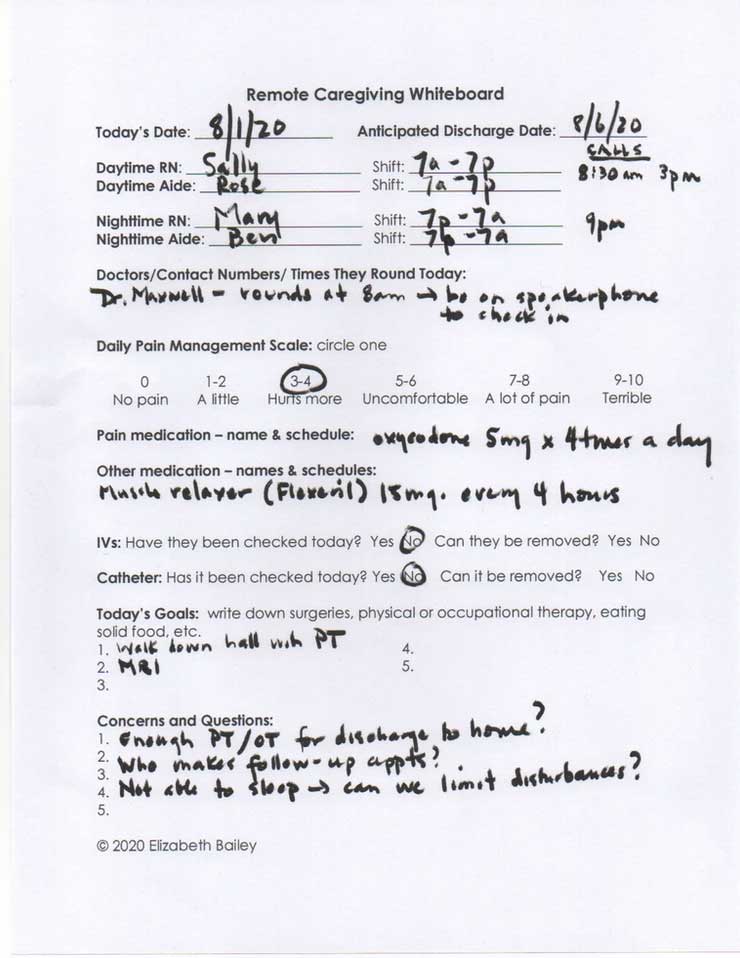 Remote Caregiving Whiteboard
Today's Date: 8/1/20 Anticipated Discharge Date: 8/6/20
CALLS
Daytime RN: Sally Shift: 7a - 7p 8:30 am 3pm
Daytime Aide: Rose Shift: 7a - 7p
Nighttime RN: Mary Shift: 7p - 7a 9pm
Nighttime Aide: Ben Shift: 7p - 7a
Doctors/Contact Numbers/ Times They Round Today:
Dr. Maxwell - rounds at 8am → be on speakerphone
to check in
Daily Pain Management Scale: circle one
0 1-2 3-4 5-6 7-8 9-10
No pain A little Hurts more Uncomfortable A lot of pain Terrible
Pain medication – name & schedule: oxycodone 5mg x 4 times a day
Other medication – names & schedules:
Muscle relaxer (Flexeril) 15mg. every 4 hours
IVs: Have they been checked today? Yes No Can they be removed? Yes No
Catheter: Has it been checked today? Yes No Can it be removed? Yes No
Today's Goals: write down surgeries, physical or occupational therapy, eating
solid food, etc.
1. Walk down hall with PT 4.
2. MRI 5.
3.
Concerns and Questions:
1. Enough PT/OT for discharge to home?
2. Who makes follow-up appts?
3.
4. Not able to sleep → can we limit disturbances?
5.
© 2020 Elizabeth Bailey